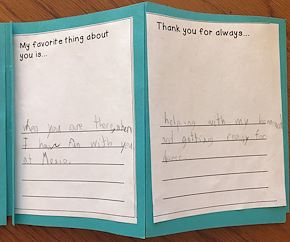 My favorite thing about
you is...
when you are there when
I have fun with you
at
Thank you for always...
helping with my
and getting ready for
dance.